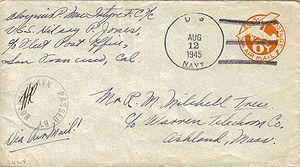 Aloysius P. MacIntyre C.I/c
U.S.S. Hilary P. Jones,
c/o Fleet Post Office,
San Francisco, Cal.
U. S.
AUG
12
1945
NAVY
6¢
AIR MAIL
PASSED BY
NAVAL
Via Air Mail!
Mr. R. M. Mitchell Tree
c/o Warren Telechron Co.
Ashland, Mass.